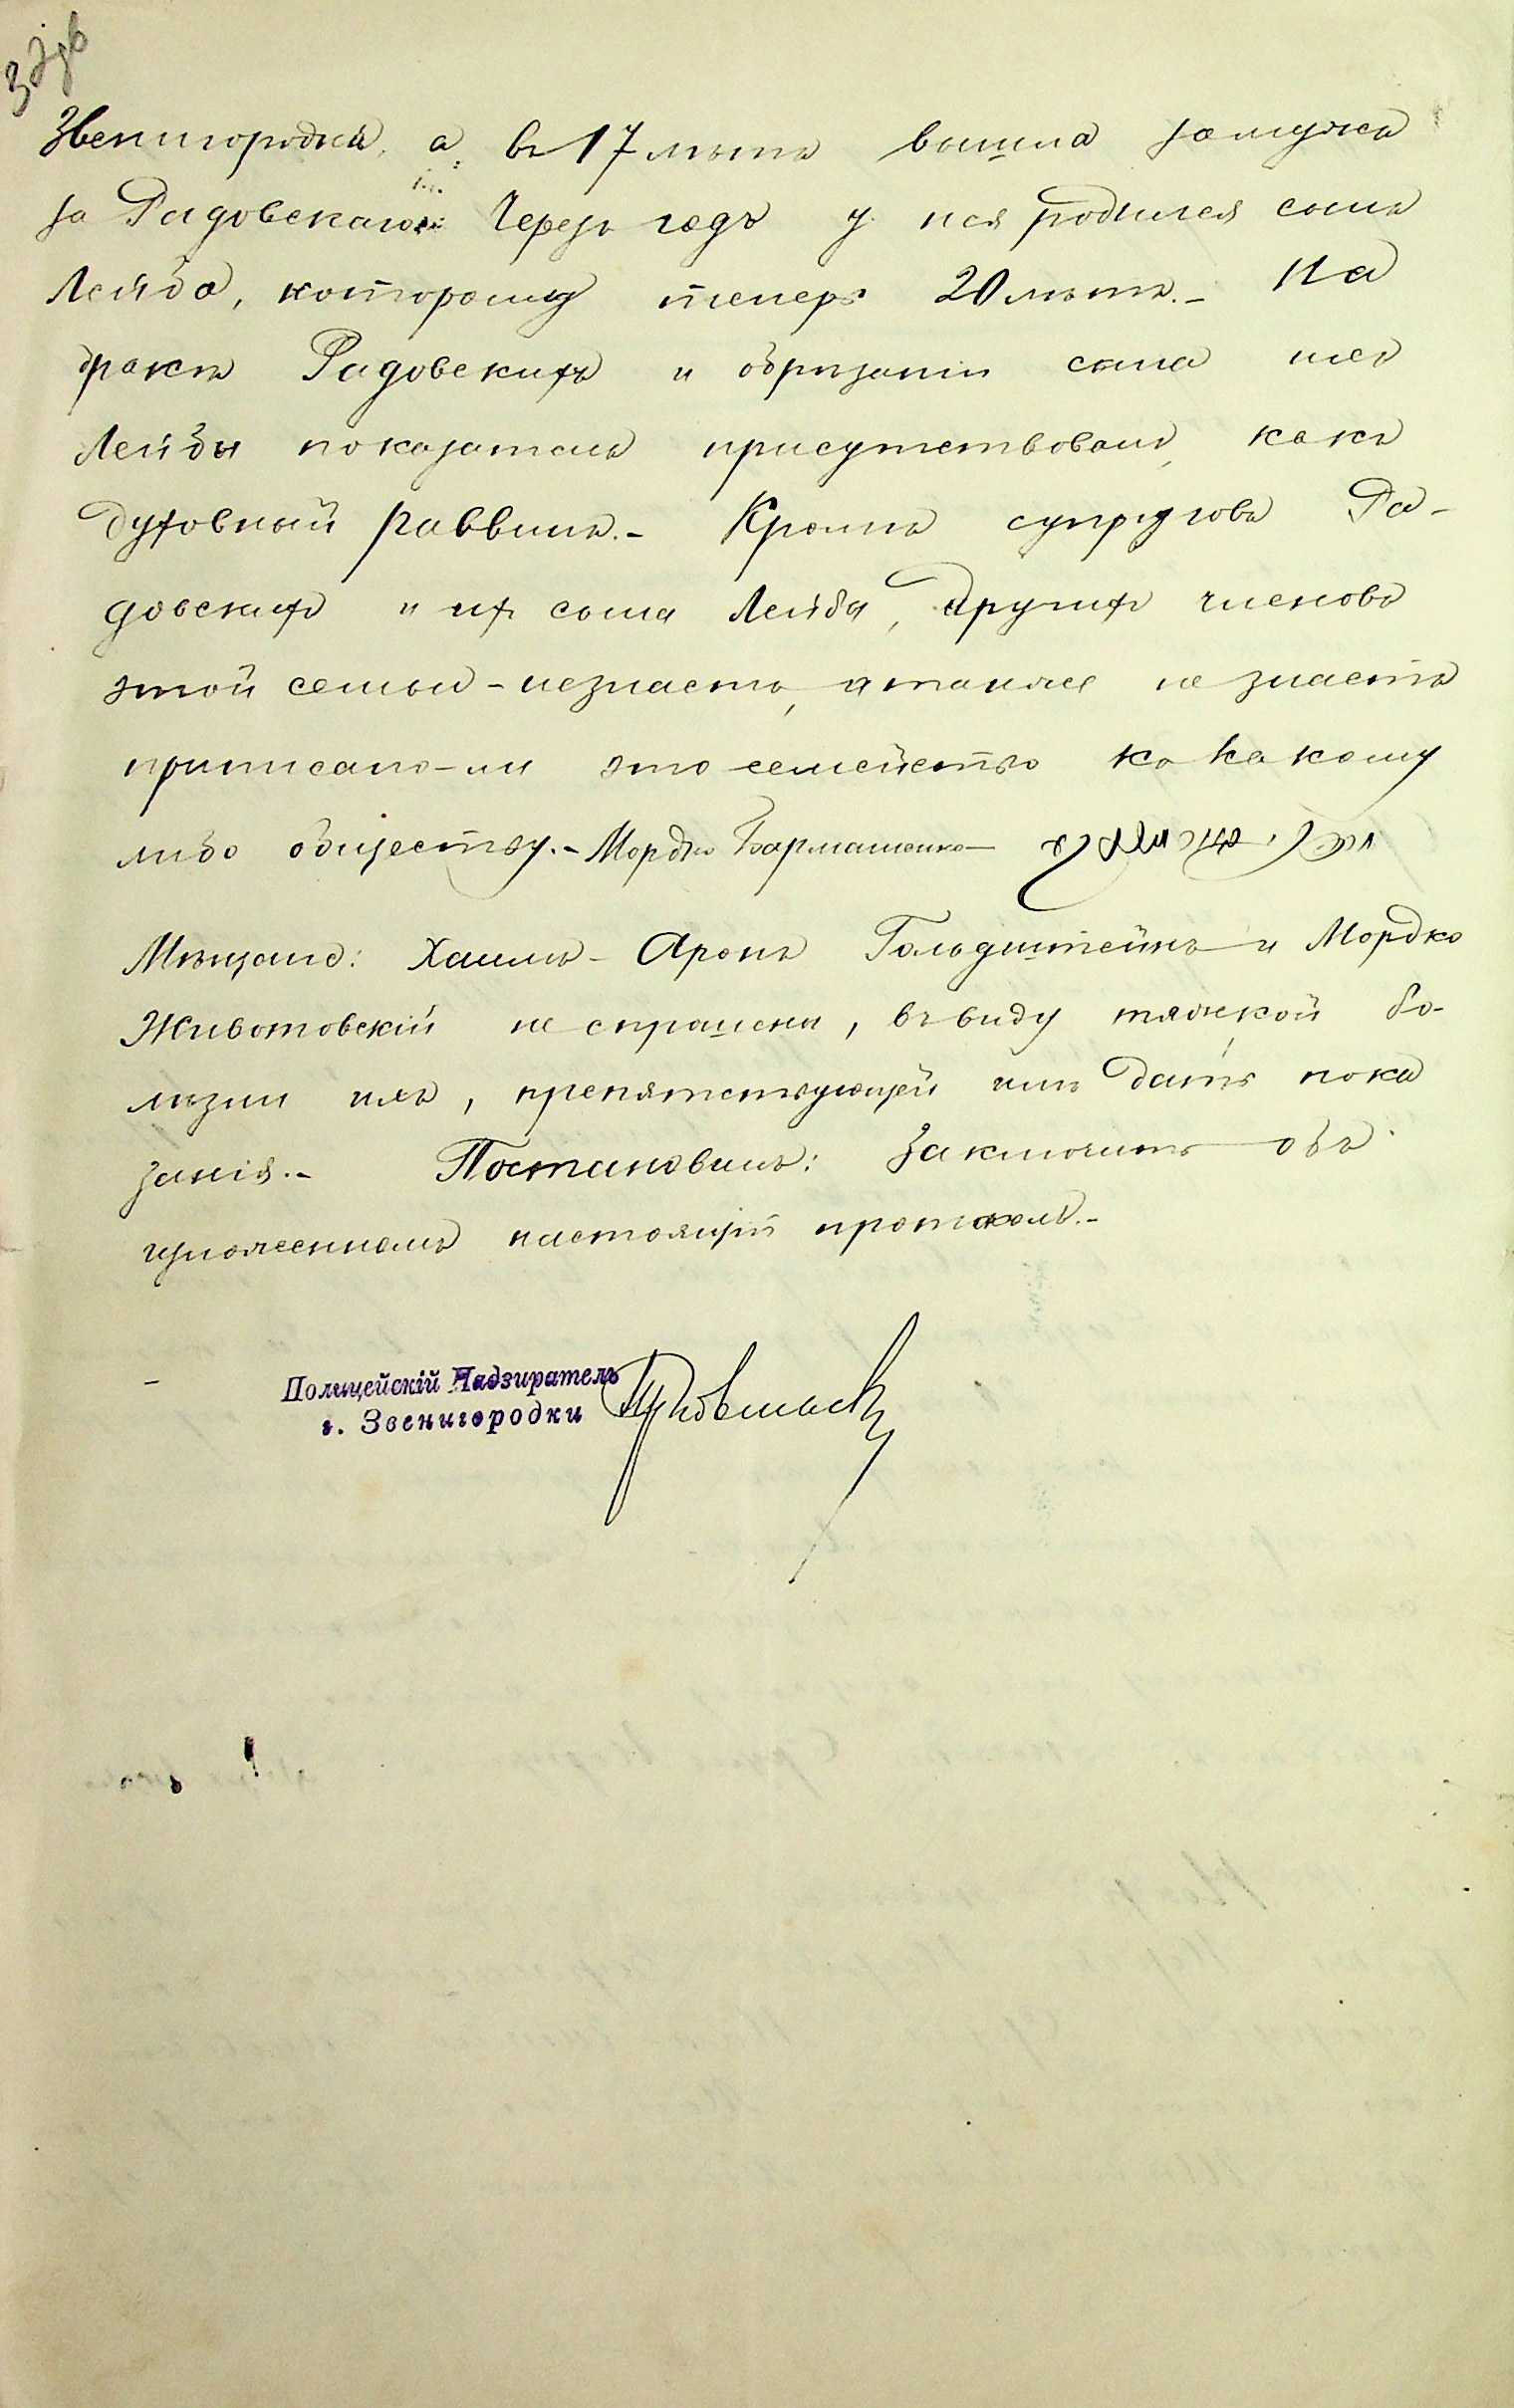 Звенигородка, а въ 17 лѣтъ вышла замужъ
за Радовскаго. Черезъ годъ у нея родился сынъ
Лейба, которому теперь 20 лѣтъ. – На
бракѣ Радовскихъ и обрѣзаніи сына ихъ
Лейбы показатель присутствовалъ, какъ
духовный раввинъ. – Кромѣ супруговъ Ра-
довскихъ и ихъ сына Лейбы, другихъ членовъ
этой семьи – незнаетъ, а также не знаетъ
приписано-ли это семейство къ какому
либо обществу. – Мордко Бармашенко
Мѣщане: Хаимъ-Аронъ Гольдштейнъ и Мордко
Животовскій не спрошены, въ виду тяжкой бо-
лѣзни ихъ, препятствующей имъ дать пока
занія. – Постановилъ: Заключить объ
изложенномъ настоящій протоколъ. –
Полицейскій Надзиратель
г. Звенигородки